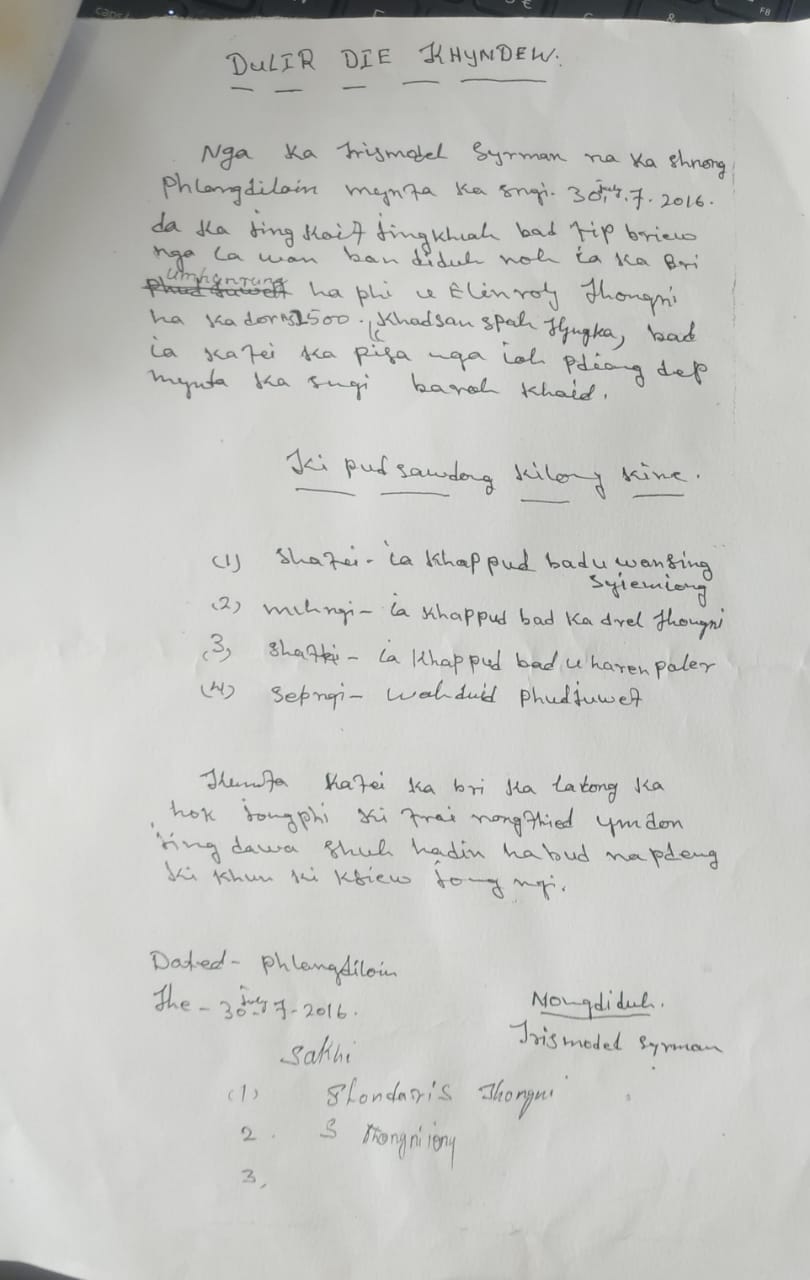 DULIR DIE KHYNDEW.
Nga Ka Trismodel Syrman na Ka Shnong
Phlangdiloin mynta Ka sngi. 30,July.7.2016.
da Ka jing Koit jingkhiah bad tip briew
nga la wan ban diduh noh ia Ka Bri
Umhynrung
ha phi u Elinroy Thongni
ha Ka dor 1500. (Khadsan spah Tyngka, bad
ia Katei Ka pisa nga ioh pdiang dep
mynta Ka sngi baroh Khaid.
Ki pud sawdong Kilong Kine.
(1) Shatei - ia Khappud bad u wansing
Syiemiong
(2) mihngi - ia Khappud bad Ka drel Thongni
(3) Shathi - ia Khappud bad u haren paler
(4) Sepngi - Wahduid Phudjuwet
Katei Ka bri Ka latong Ka
hok jongphi Ki trai nongthied ymdon
jing dawa Shuh hadin habud napdeng
Ki Khun Ki Ksiew jong ngi.
Dated - Phlangdiloin
The - 30 July-7-2016.
Nongdiduh.
Trismodel Syrman
Sakhi
(1) Shondaris Thongni
2. S Thongni iong
3,